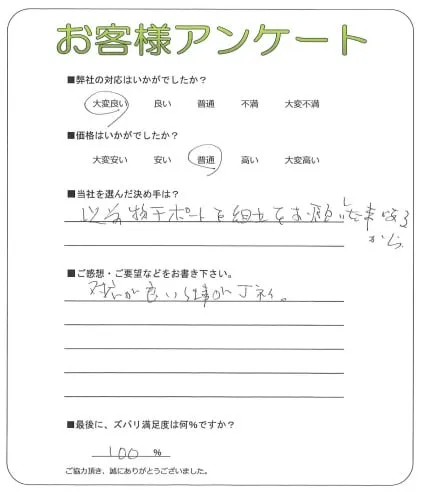 お客様アンケート
■弊社の対応はいかがでしたか?
大変良い 良い 普通 不満 大変不満
■価格はいかがでしたか?
大変安い 安い 普通 高い 大変高い
■当社を選んだ決め手は?
以前物干ポートを組立をお願いした事が有る
から
■ご感想・ご要望などをお書き下さい。
対応が良い 仕事が丁ネイ。
■最後に、ズバリ満足度は何%ですか?
100 %
ご協力頂き、誠にありがとうございました。